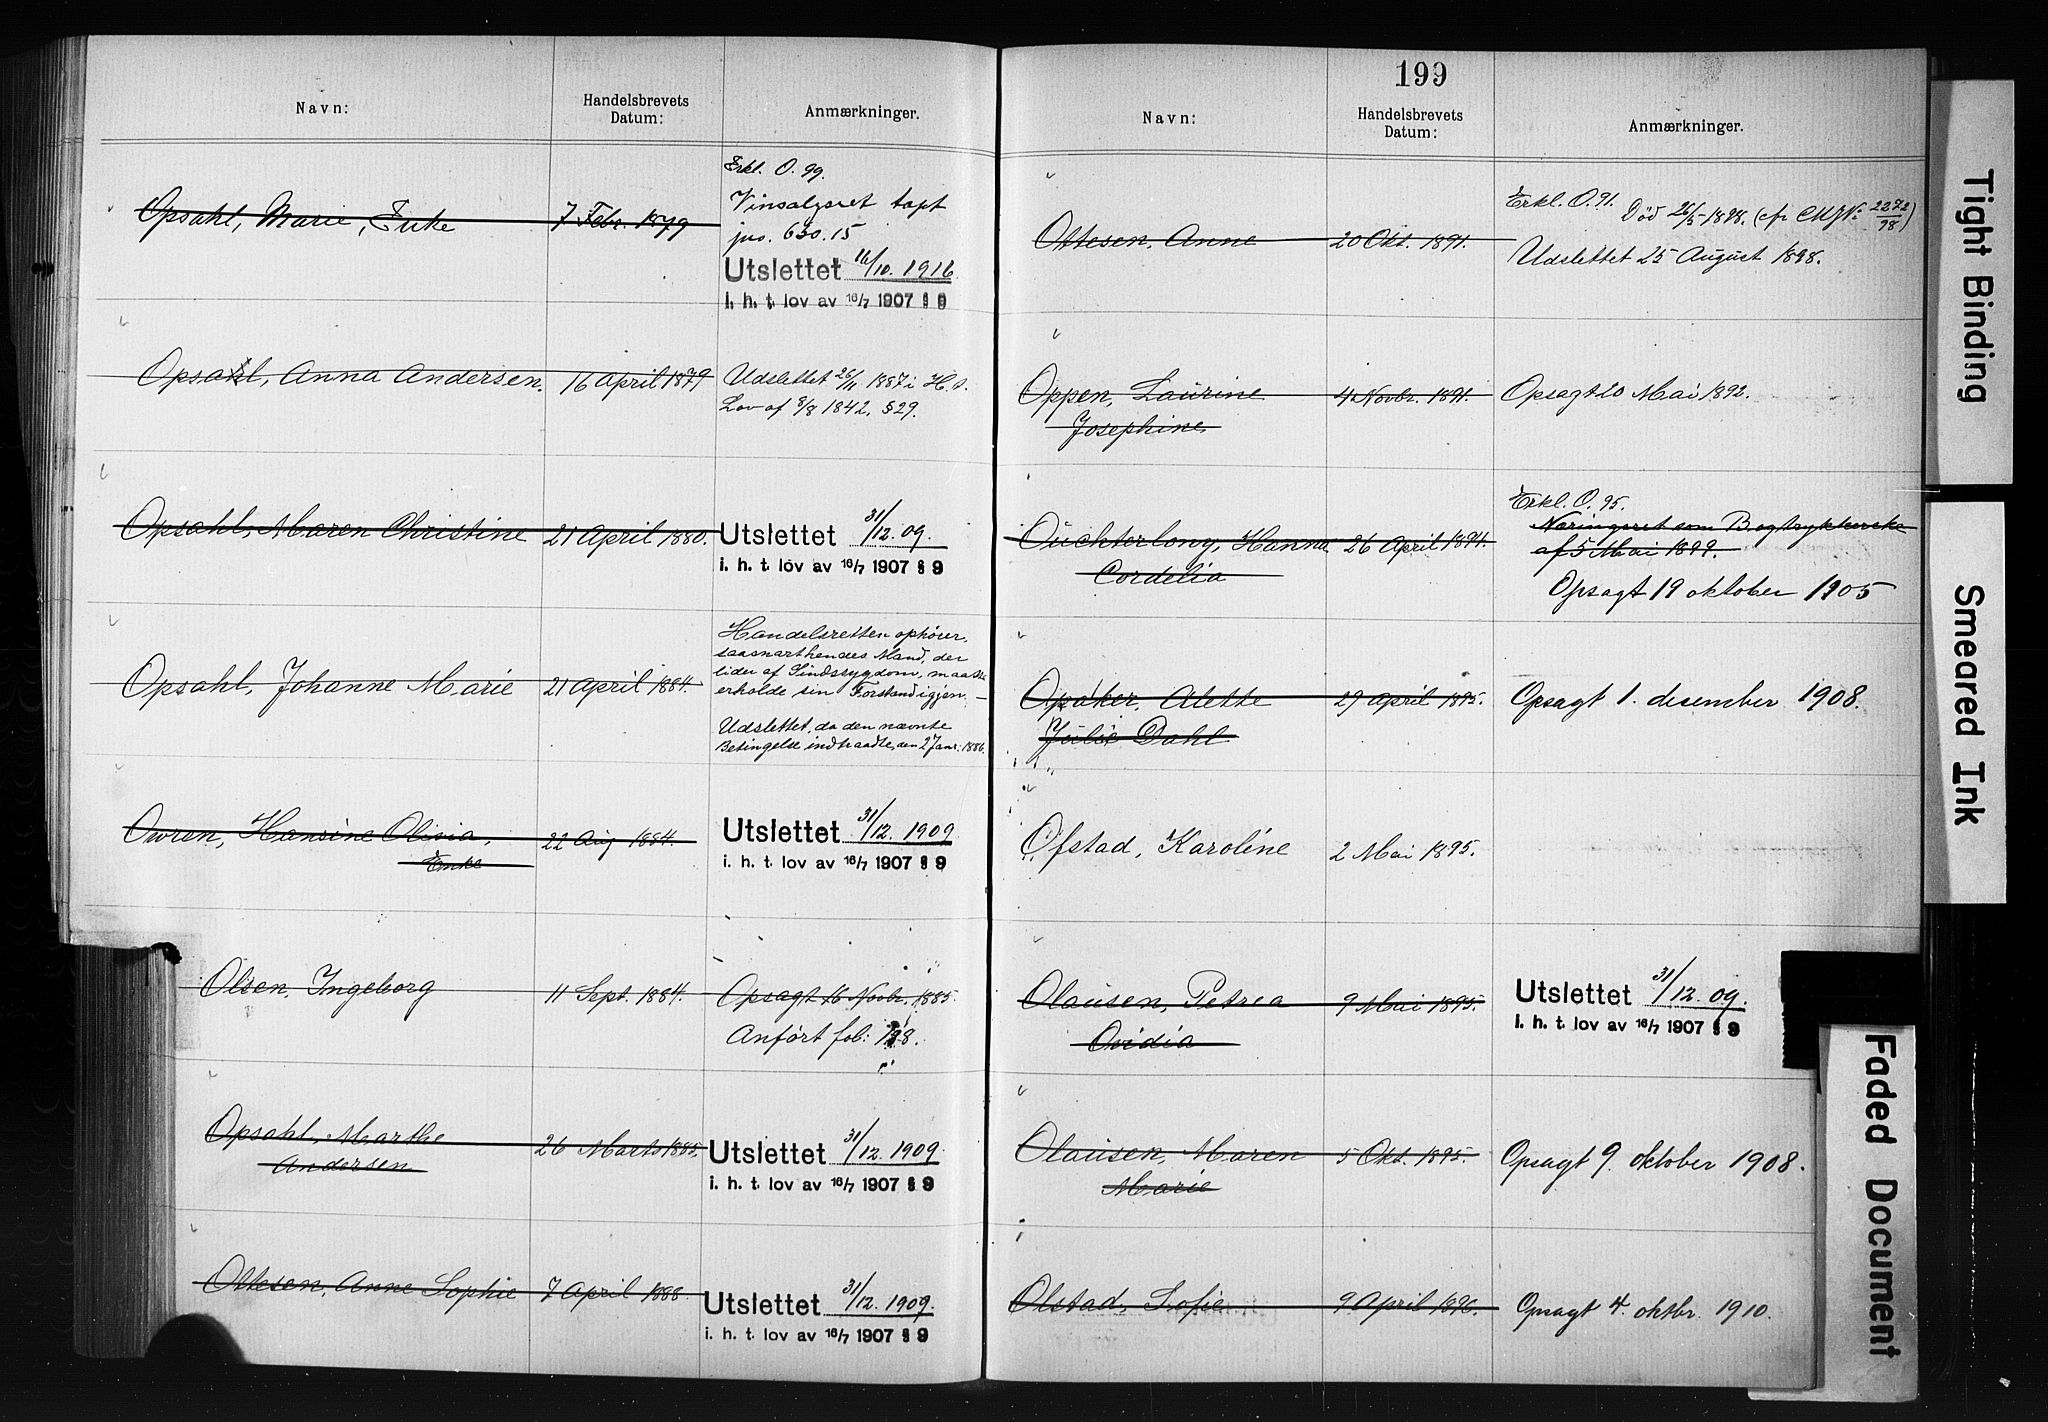 Navn:
Handelsbrevets
Datum:
Anmærkninger.
Opsahl, Marie, Enke
7 Febr. 1879
Erkl. O. 99.
Vinsalgsret tapt
jno. 630.15
Utslettet 16/10. 1916
i. h. t. lov av 16/7 1907 § 9
Opsahl, Anna Andersen.
16 April 1879
Udslettet 26/11 1887 i H. t.
Lov af 8/8 1842, § 29.
Opsahl, Maren Christine
21 April 1880.
Utslettet 31/12. 09.
i. h. t. lov av 16/7 1907 § 9
Opsahl, Johanne Marie
21 April 1884.
Handelsretten ophører,
saasnart hendes Mand, der
lider af Sindssygdom, maatte
erholde sin Forstand igjen. —
Udslettet, da den nævnte
Betingelse indtraadte, den 2 Janr. 1886.
Owren, Hansine Olivia,
Enke
22 Aug 1884.
Utslettet 31/12. 1909
i. h. t. lov av 16/7 1907 § 9
Olsen, Ingeborg
11 Sept. 1884.
Opsagt 16 Novbr. 1885.
Anført fol: 198.
Opsahl, Marthe
Andersen
26 Marts 1885.
Utslettet 31/12. 1909.
i. h. t. lov av 16/7 1907 § 9
Ottesen, Anne Sophie
7 April 1888.
Utslettet 31/12. 1909.
i. h. t. lov av 16/7 1907 § 9
199
Navn:
Handelsbrevets
Datum:
Anmærkninger.
Ottesen, Anne
20 Okt. 1891.
Erkl. O. 91. Død 26/5 1898. (cfr. 2272/98)
Udslettet 25 August 1898.
Oppen, Laurine
Josephine.
4 Novbr. 1891.
Opsagt 20 Mai 1892.
Ouchterlony, Hanna
Cordelia
26 April 1894.
Erkl. O. 95.
Næringsret som Bogtrykkerske
af 5 Mai 1899.
Opsagt 19 oktober 1905
Opaker, Alette
Julie Dahl
29 April 1895.
Opsagt 1. desember 1908.
Ofstad, Karoline
2 Mai 1895.
Olausen, Petrea
Ovidia
9 Mai 1895.
Utslettet 31/12. 09.
i. h. t. lov av 16/7 1907 § 9
Olausen, Maren
Marie
5 Okt. 1895.
Opsagt 9. oktober 1908.
Olstad, Sofie
9 April 1896.
Opsagt 4. oktbr. 1910.
Tight Binding
Smeared Ink
Faded Document